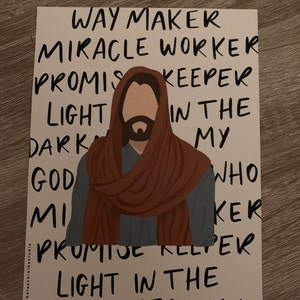 WAY MAKER
MIRACLE WORKER
PROMIS KEEPER
LIGHT IN THE
DARK MY
GOD WHO
MI KER
PROMISE KEEPER
LIGHT IN THE